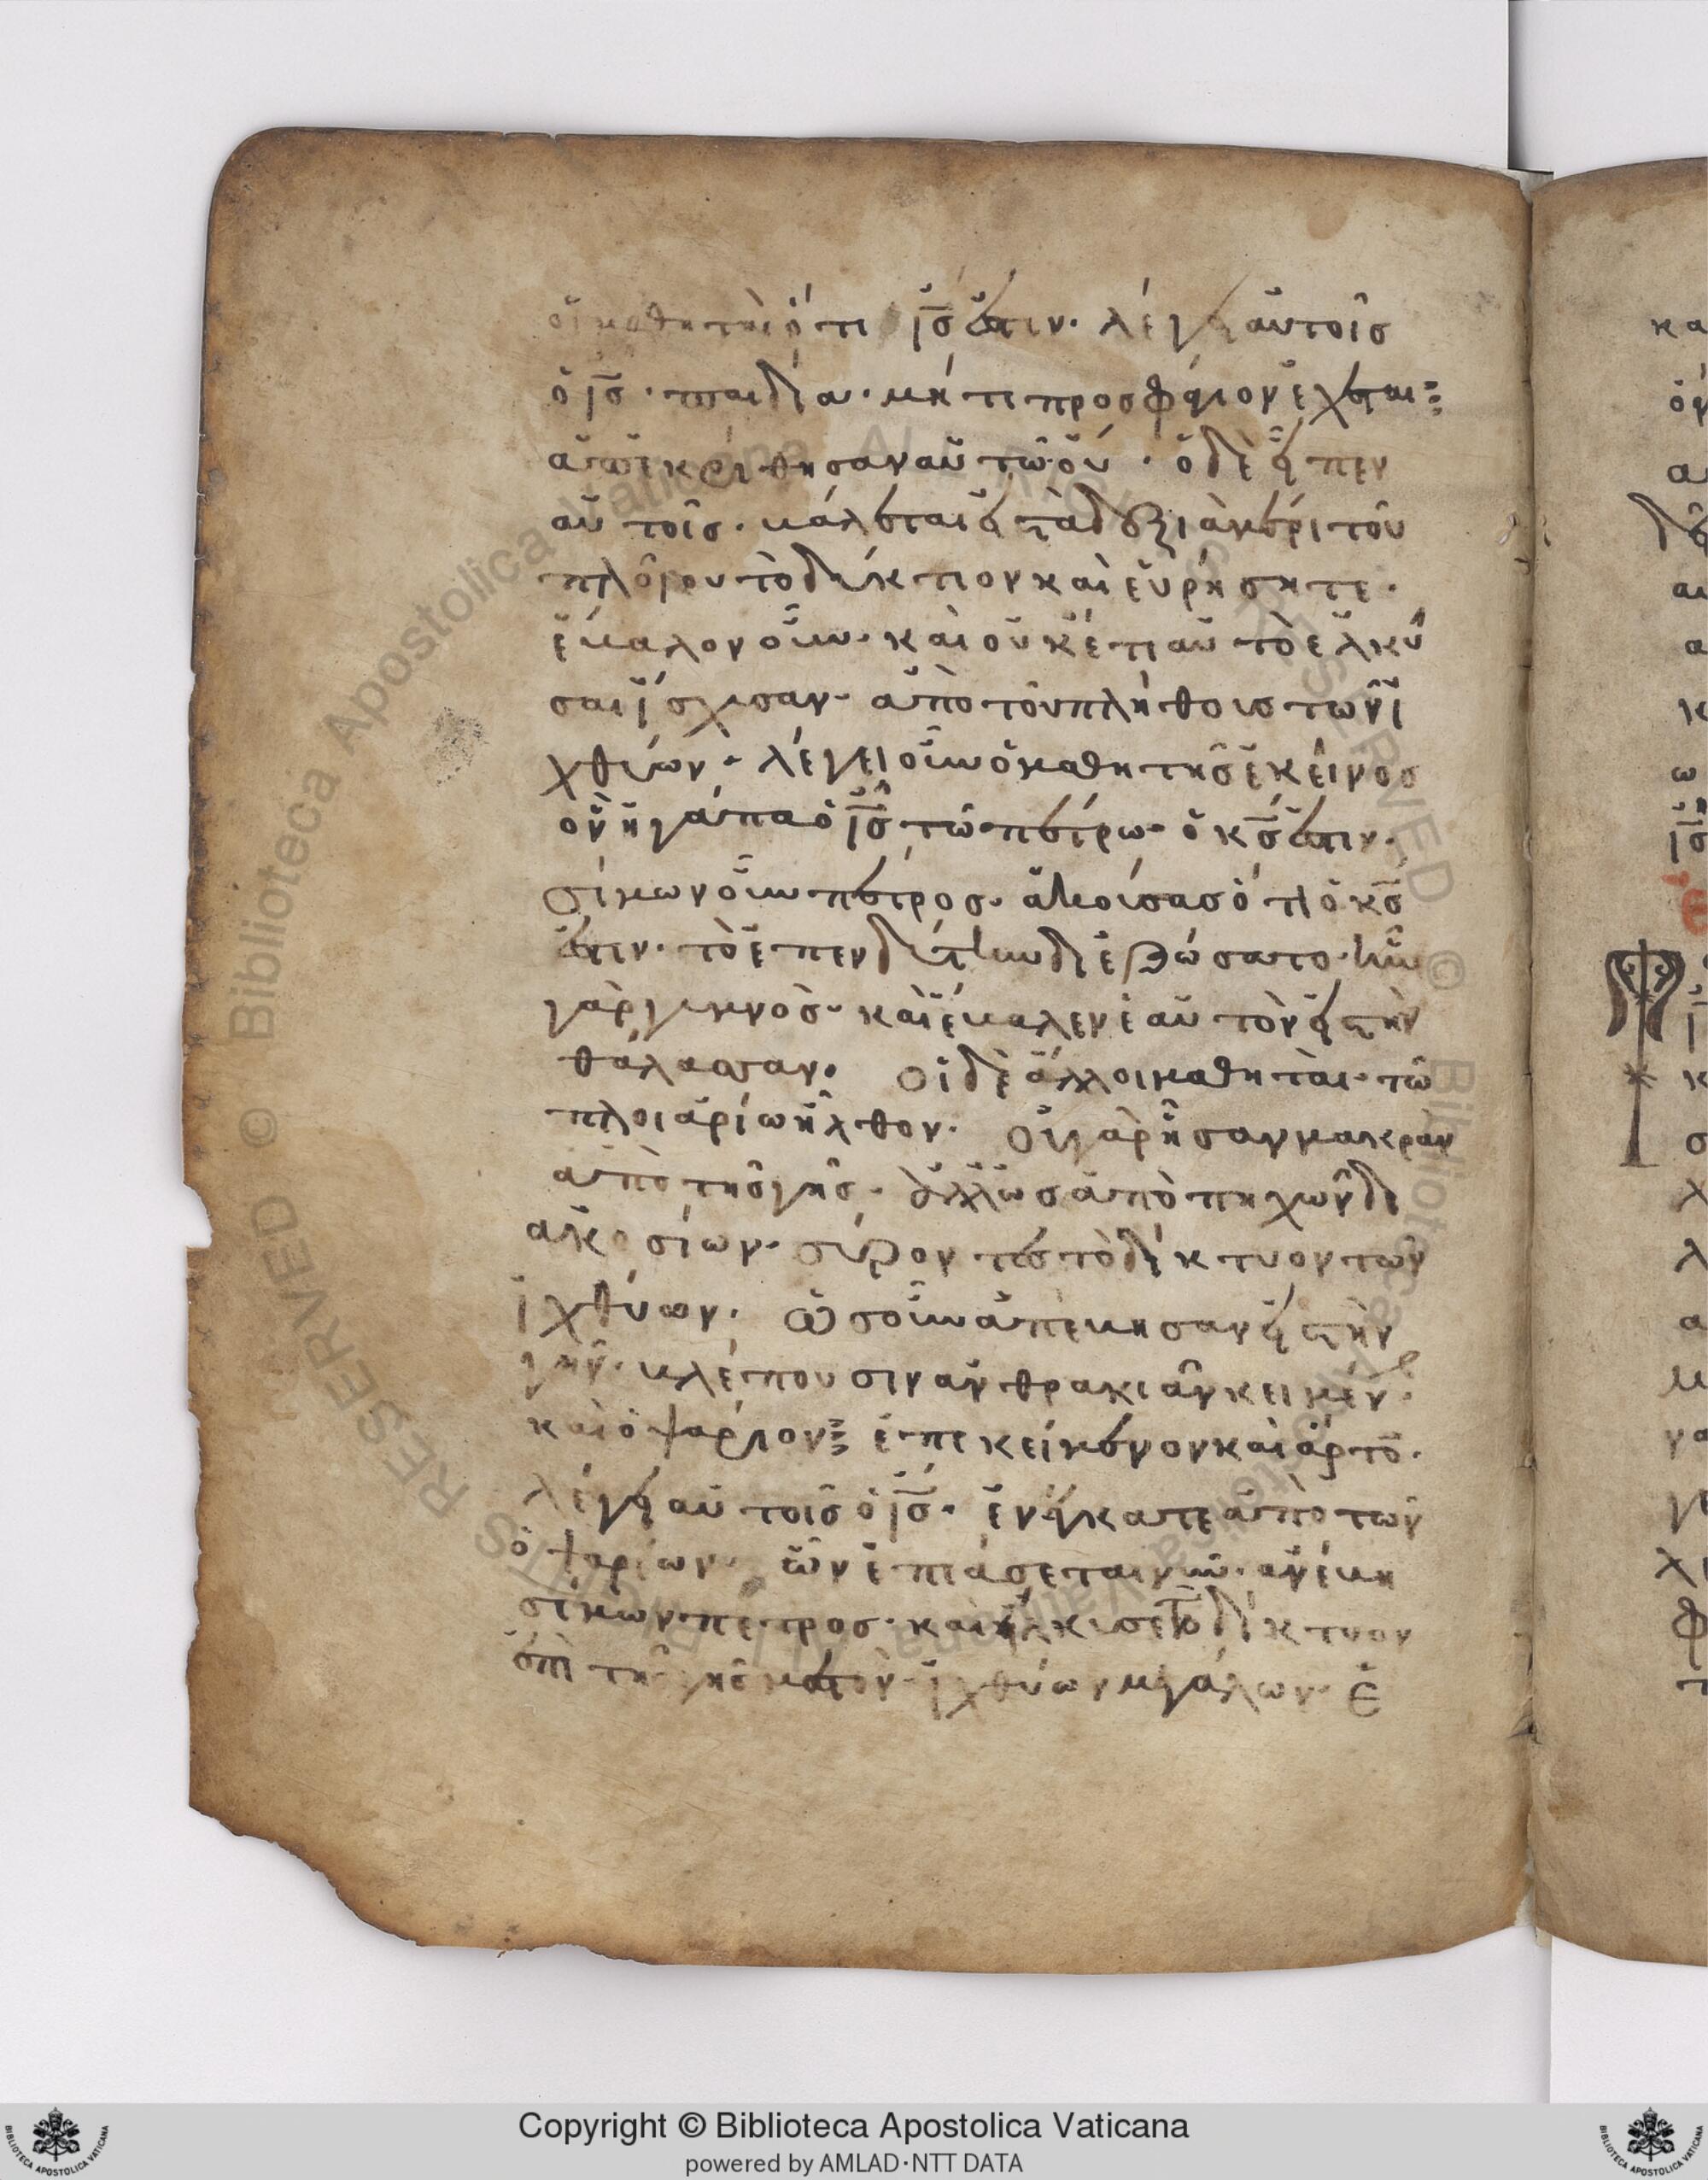 οἱ μαθηταὶ ὅτι ις ἐστιν· λέγει αὐτοῖς
ὁ ις· παιδία· μή τι προσφάγιον ἔχεται·
ἀπεκρίθησαν αὐτῶ· οὔ· ὁ δὲ εἶπεν
αὐτοῖς· βάλεται εἰς τὰ δεξιὰ μέρι τοῦ
πλοίου τὸ δίκτιον καὶ εὑρήσητε·
ἔβαλον οὖν· καὶ οὐκέτι αὐτὸ ἑλκύ
σαι ἴσχυσαν· ἀπὸ τοῦ πλήθους τῶν ἰ
χθύων· λέγει οὖν ὁ μαθητῆς ἐκεῖνος
ὃν ἠγάπα ὁ ις τῶ πέτρω· ὁ κς ἐστιν·
σίμων οὖν πέτρος· ἀκούσας ὅτι ὁ κς
ἐστιν· τὸ ἐπενδύτην διεζώσατο· ἦν
γὰρ γυμνὸς· καὶ ἔβαλεν ἑαυτὸν εἰς τὴν
θάλασσαν· οἱ δὲ ἄλλοι μαθηταὶ· τῶ
πλοιαρίω ἦλθον· οὐ γὰρ ἦσαν μακρὰν
ἀπὸ τῆς γῆς· ἀλλ' ὡς ἀπὸ πηχῶν δι
ακοσίων· σύροντες τὸ δίκτυον τῶν
ἰχθύων· ὡς οὖν ἀπέβησαν εἰς τὴν
γῆν· βλέπουσιν ἀνθρακιὰν κειμέν·
καὶ ὀψάριον ἐπικείμενον καὶ ἄρτο·
λέγει αὐτοῖς ὁ ις· ἐνέγκατε ἀπὸ τῶν
ὀψαρίων· ὧν ἐπιάσεται νῦν· ἀνέβη
σίμων πέτρος· καὶ εἵλκισε τὸ δίκτυον
ἐπὶ τῆς γῆς μεστὸν· ἰχθύων μεγάλων· ἑ
Biblioteca Apostolica Vaticana
ALL RIGHTS RESERVED ©
Copyright © Biblioteca Apostolica Vaticana
powered by AMLAD·NTT DATA